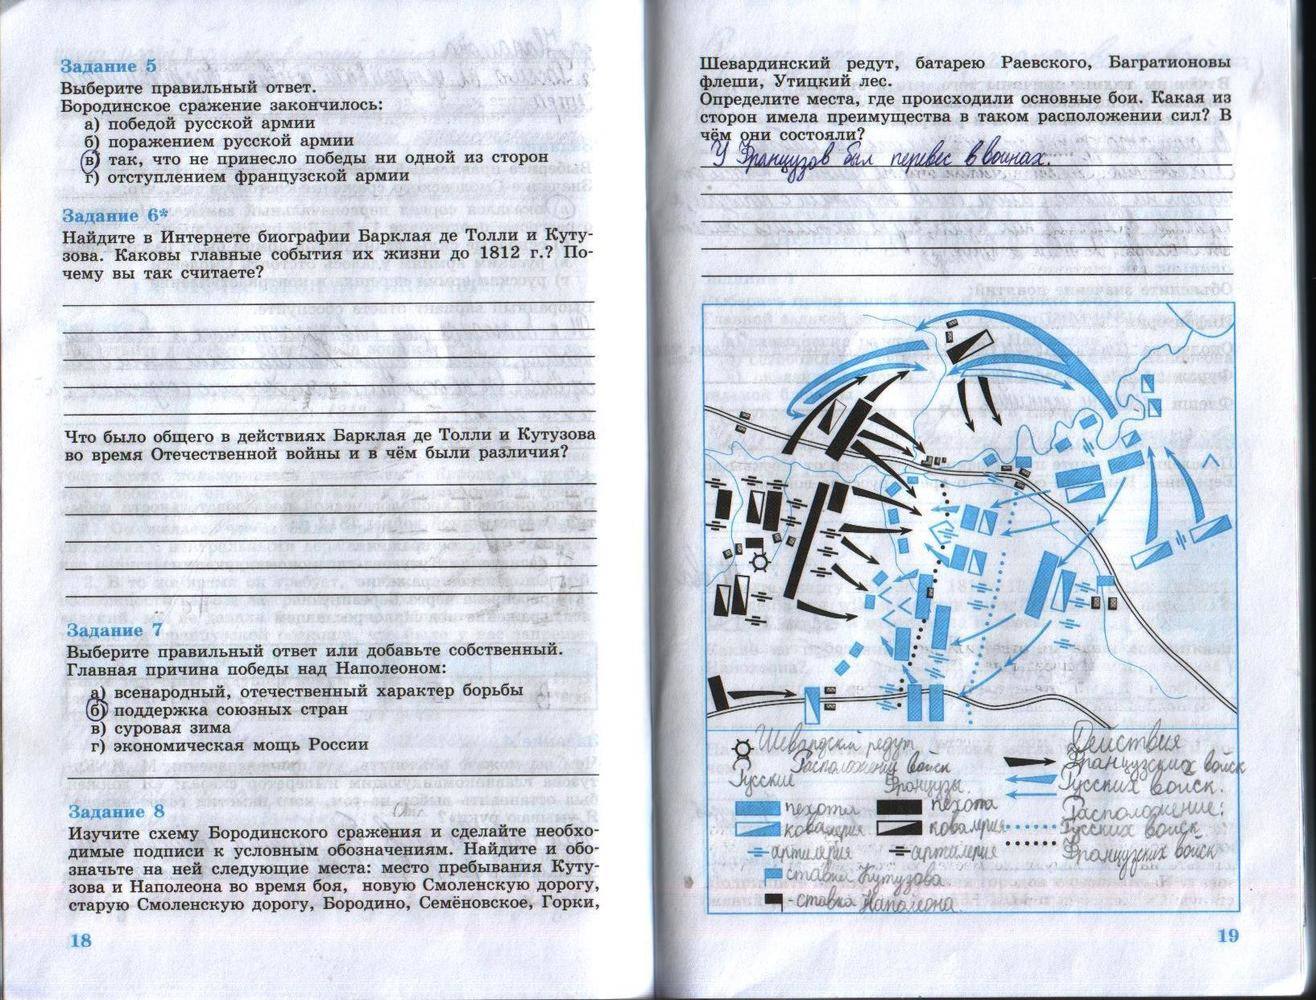 Задание 5
Выберите правильный ответ.
Бородинское сражение закончилось:
а) победой русской армии
б) поражением русской армии
в) так, что не принесло победы ни одной из сторон
г) отступлением французской армии
Задание 6*
Найдите в Интернете биографии Барклая де Толли и Куту-
зова. Каковы главные события их жизни до 1812 г.? По-
чему вы так считаете?
Что было общего в действиях Барклая де Толли и Кутузова
во время Отечественной войны и в чём были различия?
Задание 7
Выберите правильный ответ или добавьте собственный.
Главная причина победы над Наполеоном:
а) всенародный, отечественный характер борьбы
б) поддержка союзных стран
в) суровая зима
г) экономическая мощь России
Задание 8
Изучите схему Бородинского сражения и сделайте необхо-
димые подписи к условным обозначениям. Найдите и обо-
значьте на ней следующие места: место пребывания Куту-
зова и Наполеона во время боя, новую Смоленскую дорогу,
старую Смоленскую дорогу, Бородино, Семёновское, Горки,
18
Шевардинский редут, батарею Раевского, Багратионовы
флеши, Утицкий лес.
Определите места, где происходили основные бои. Какая из
сторон имела преимущества в таком расположении сил? В
чём они состояли?
У Французов был перевес в воинах.
редут
Действия
Французских войск
Русских войск.
Расположение:
Русских войск
Французких войск
Расположений войск
Русский Французы.
пехота пехота
ковалерия ковалерия
артилерия арталерия
ставка Кутузова
- ставка Наполеона.
19